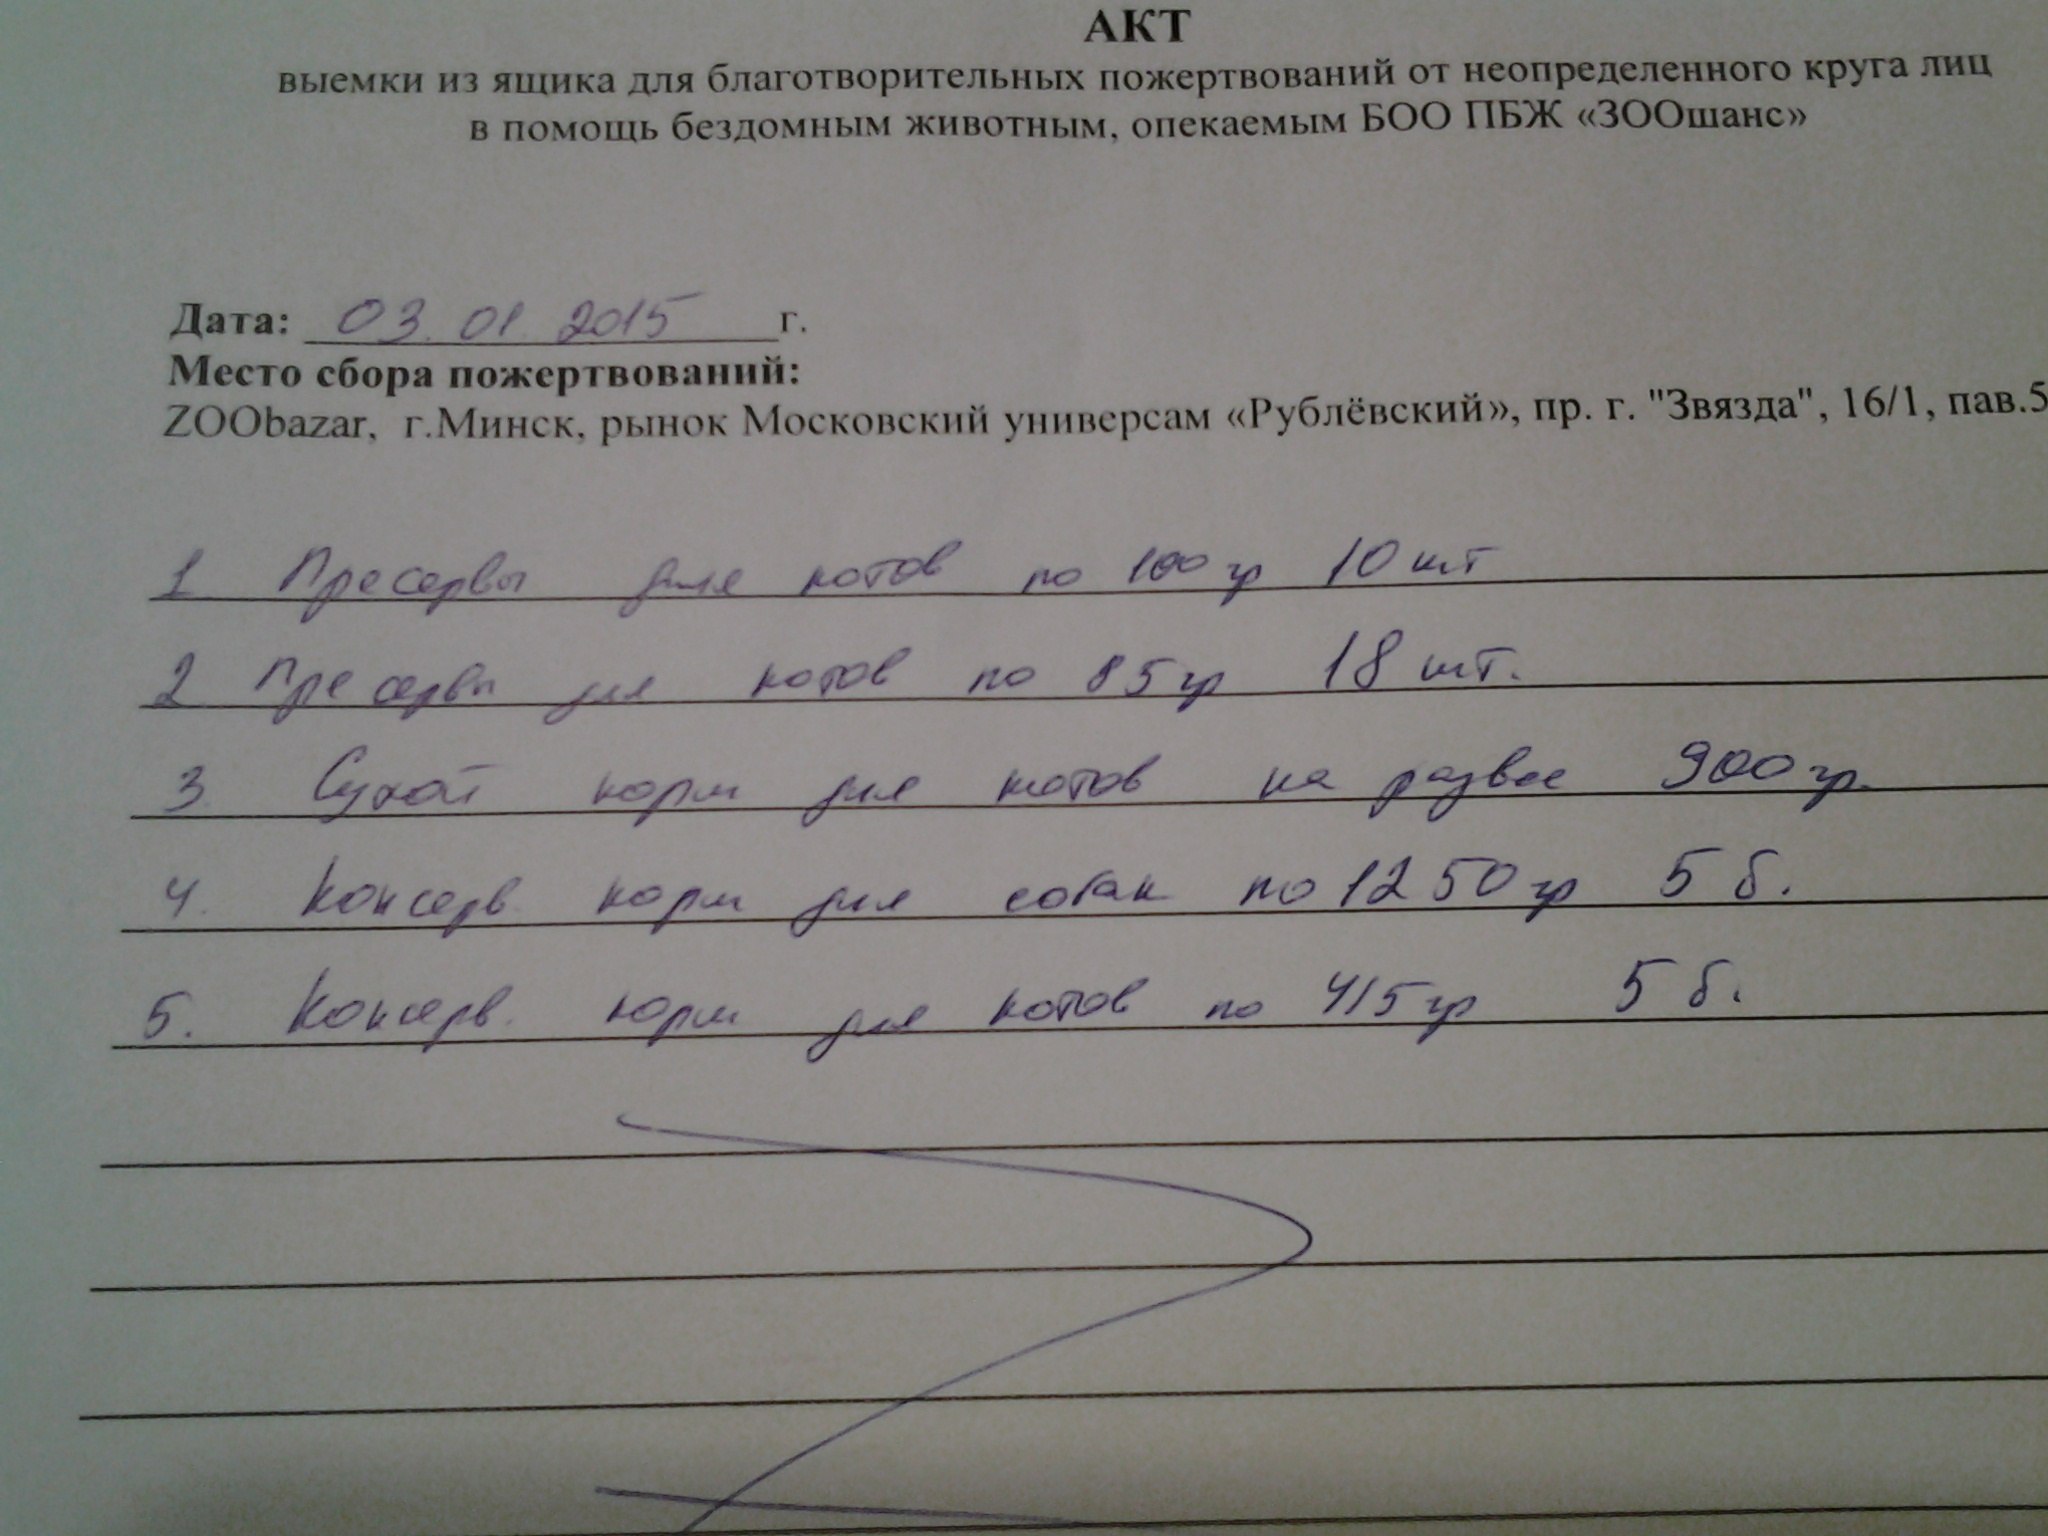 АКТ
выемки из ящика для благотворительных пожертвований от неопределенного круга лиц
в помощь бездомным животным, опекаемым БОО ПБЖ «ЗООшанс»
Дата: 03.01.2015 г.
Место сбора пожертвований:
ZOObazar, г.Минск, рынок Московский универсам «Рублёвский», пр. г. "Звязда", 16/1, пав.5
1 Пресервы для котов по 100 гр 10 шт
2 Пресервы для котов по 85 гр 18 шт.
3 Сухой корм для котов на развес 900 гр.
4. Консерв. корм для собак по 1250 гр 5 б.
5. Консерв. корм для котов по 415 гр 5 б.